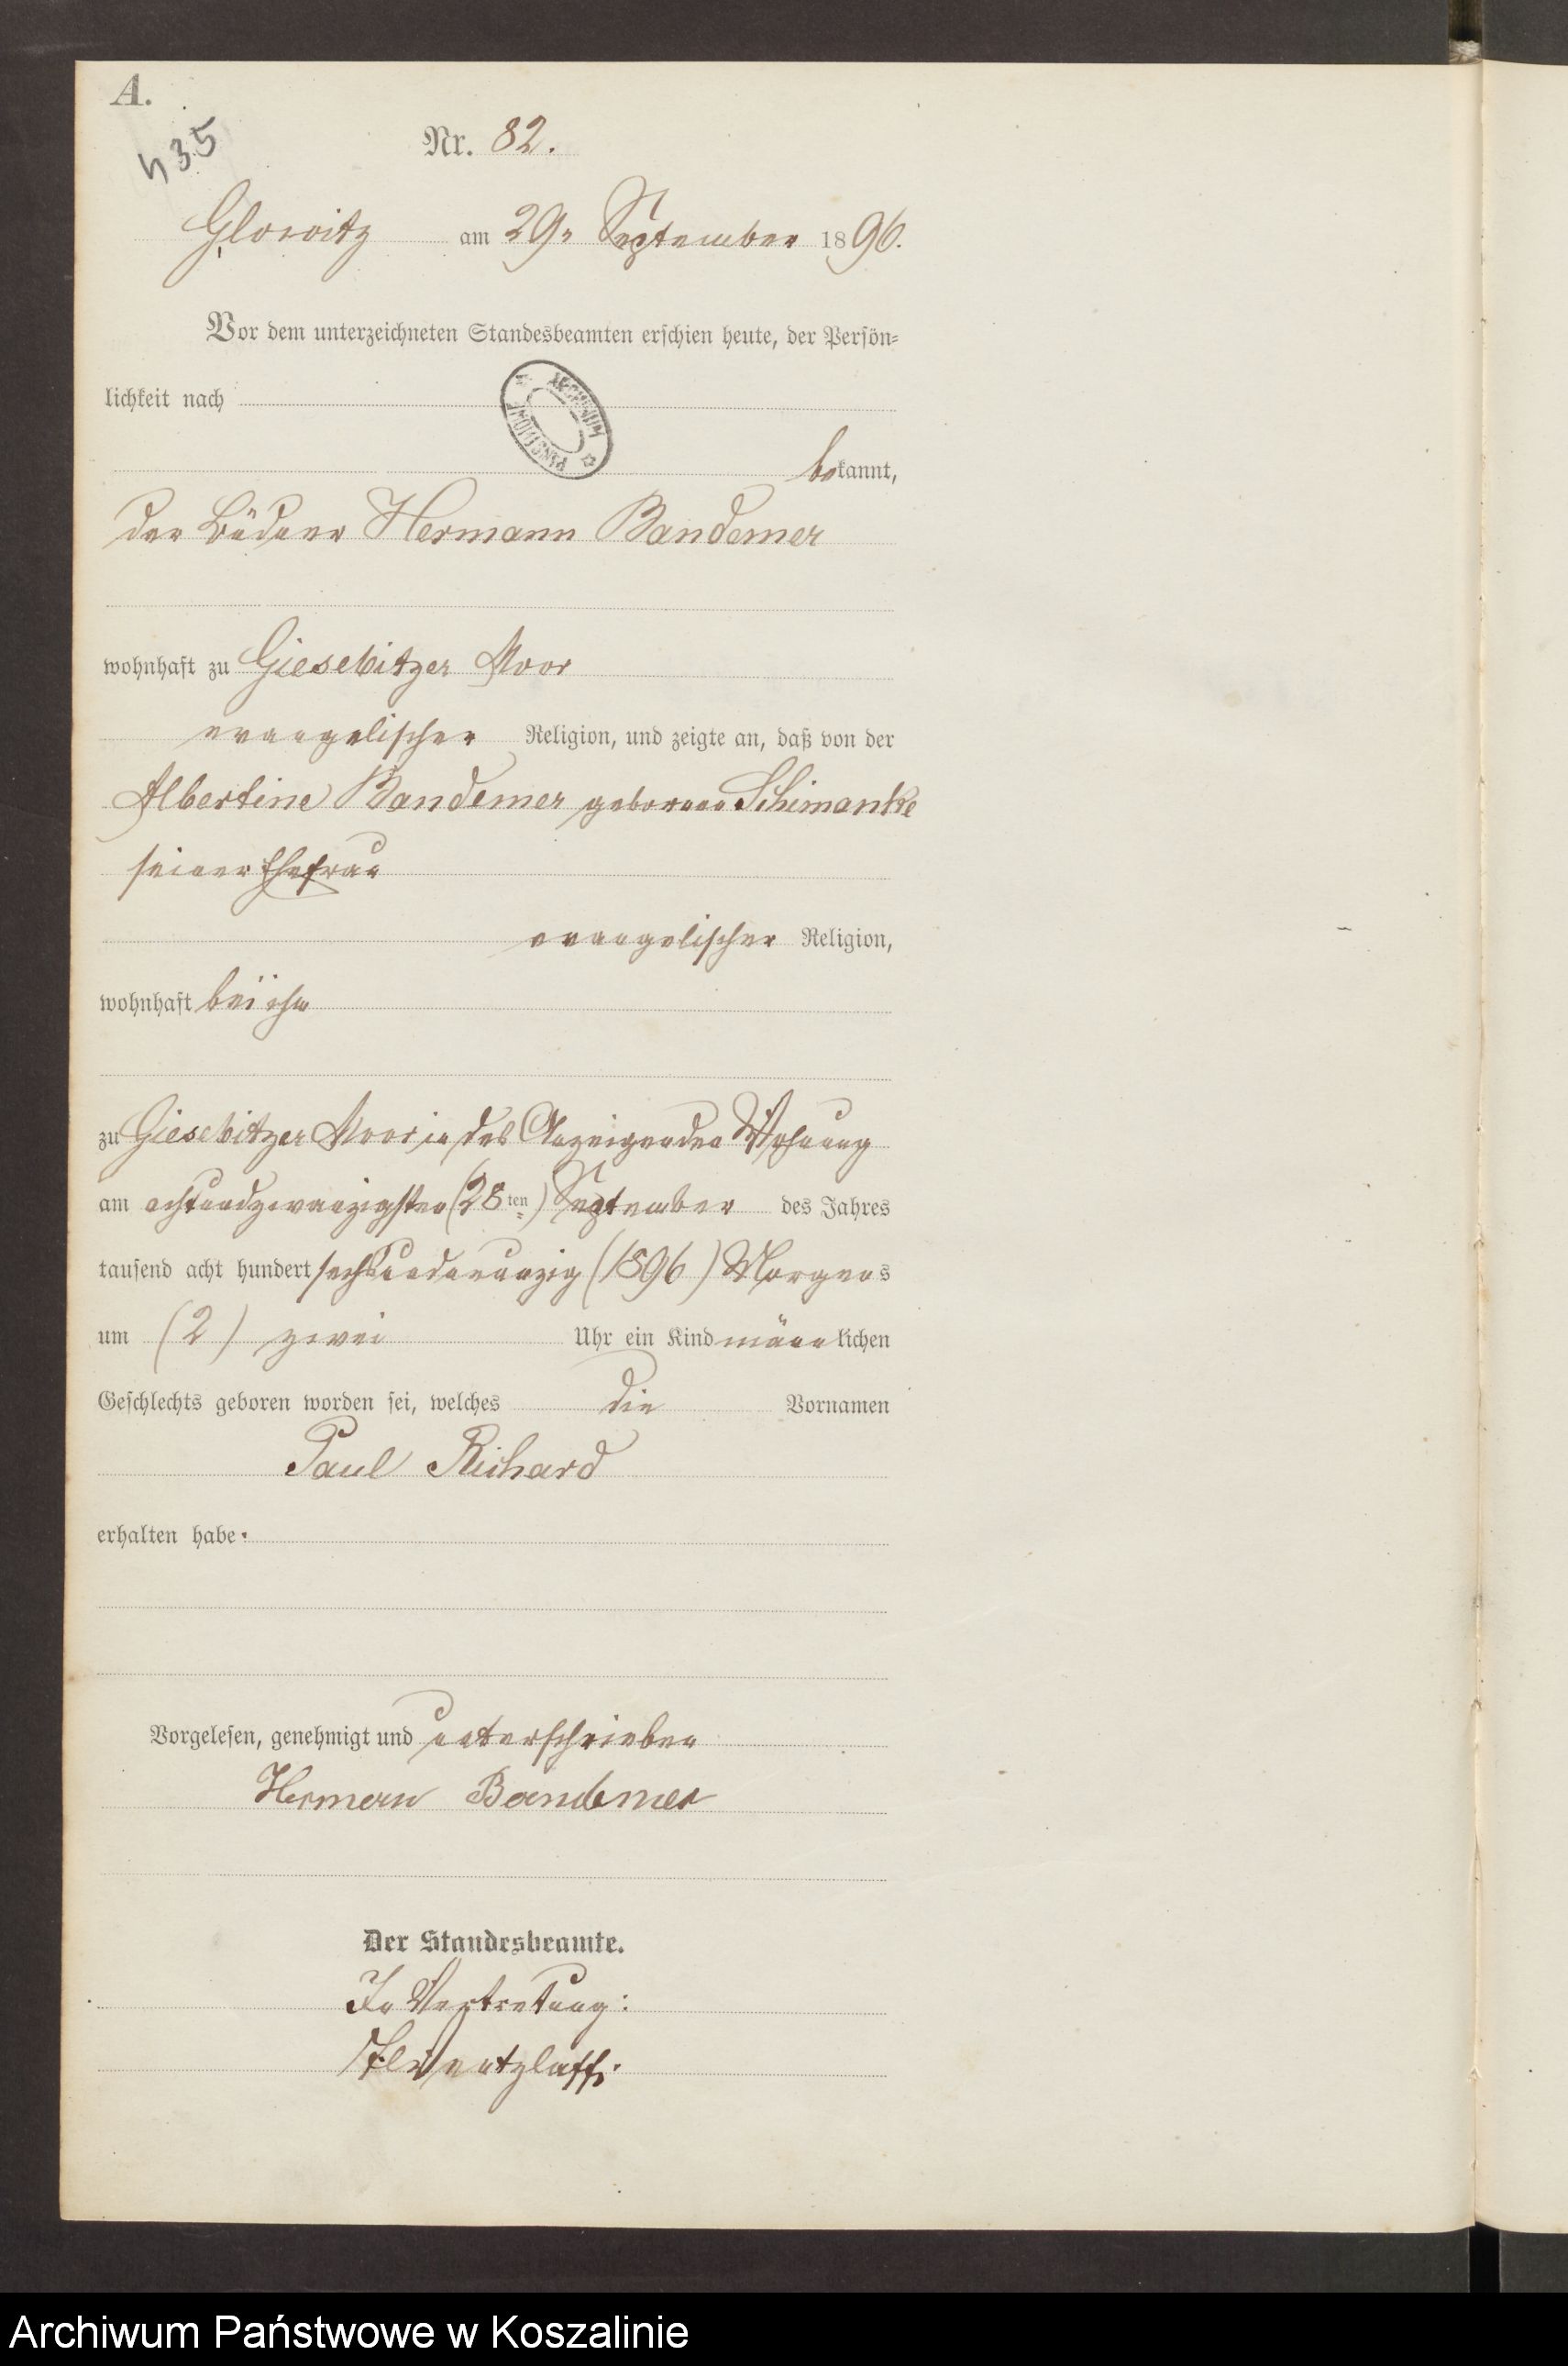 A.
435
Nr. 82.
Glowitz am 29. September 1896.
Vor dem unterzeichneten Standesbeamten erschien heute, der Persön-
lichkeit nach
ARCHIWUM PAŃSTWOWE
bekannt,
der Büdner Hermann Bandemer
wohnhaft zu Giesebitzer Moor
evangelischer Religion, und zeigte an, daß von der
Albertine Bandemer geborene Schimanke
seiner Ehefrau
evangelischer Religion,
wohnhaft bei ihm
zu Giesebitzer Moor in des Anzeigenden Wohnung
am achtundzwanzigsten (28ten) September des Jahres
tausend acht hundert sechsundneunzig (1896) Morgens
um (2) zwei Uhr ein Kind männlichen
Geschlechts geboren worden sei, welches die Vornamen
Paul Richard
erhalten habe.
Vorgelesen, genehmigt und unterschrieben
Herman Bandemer
Der Standesbeamte.
In Vertretung:
Wentzlaff.
Archiwum Państwowe w Koszalinie